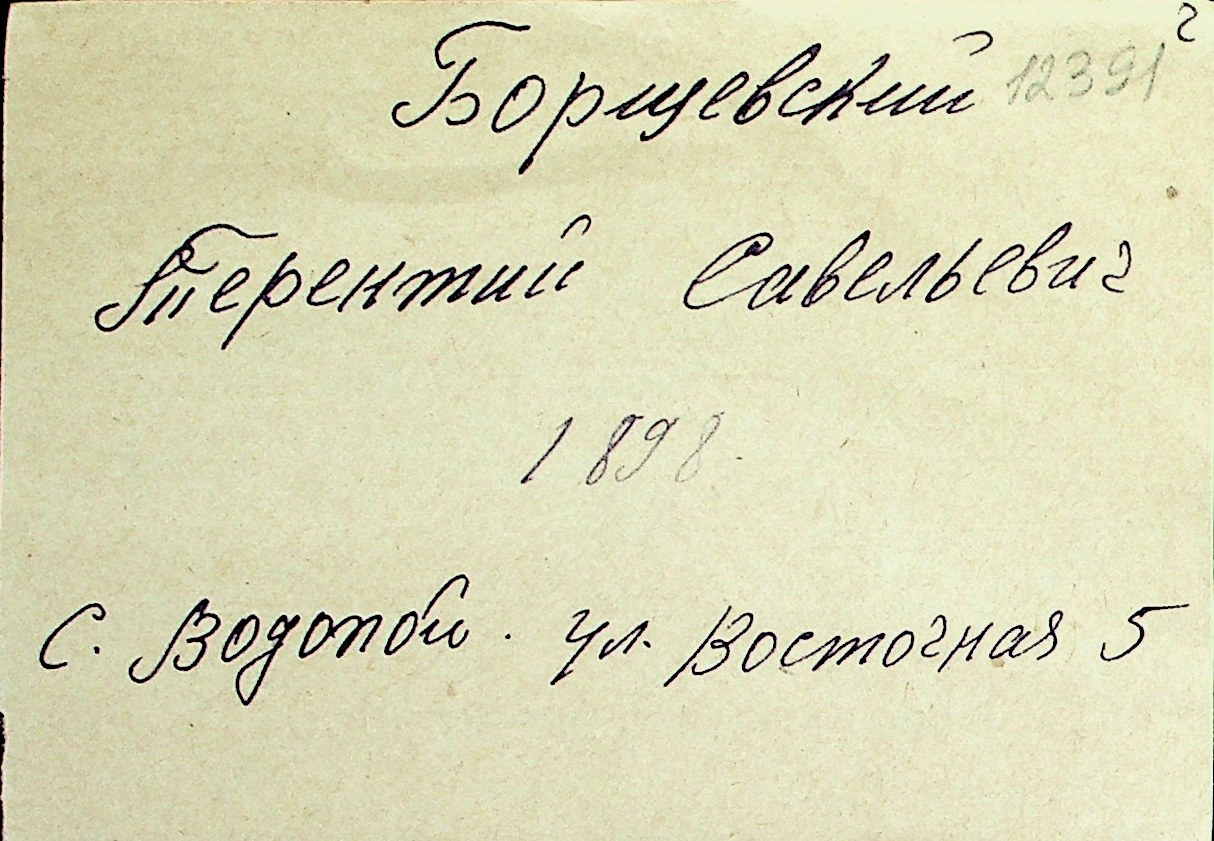 Борщевский 12391
Терентий Савельевич
1898.
с. Водопой. ул. Восточная 5